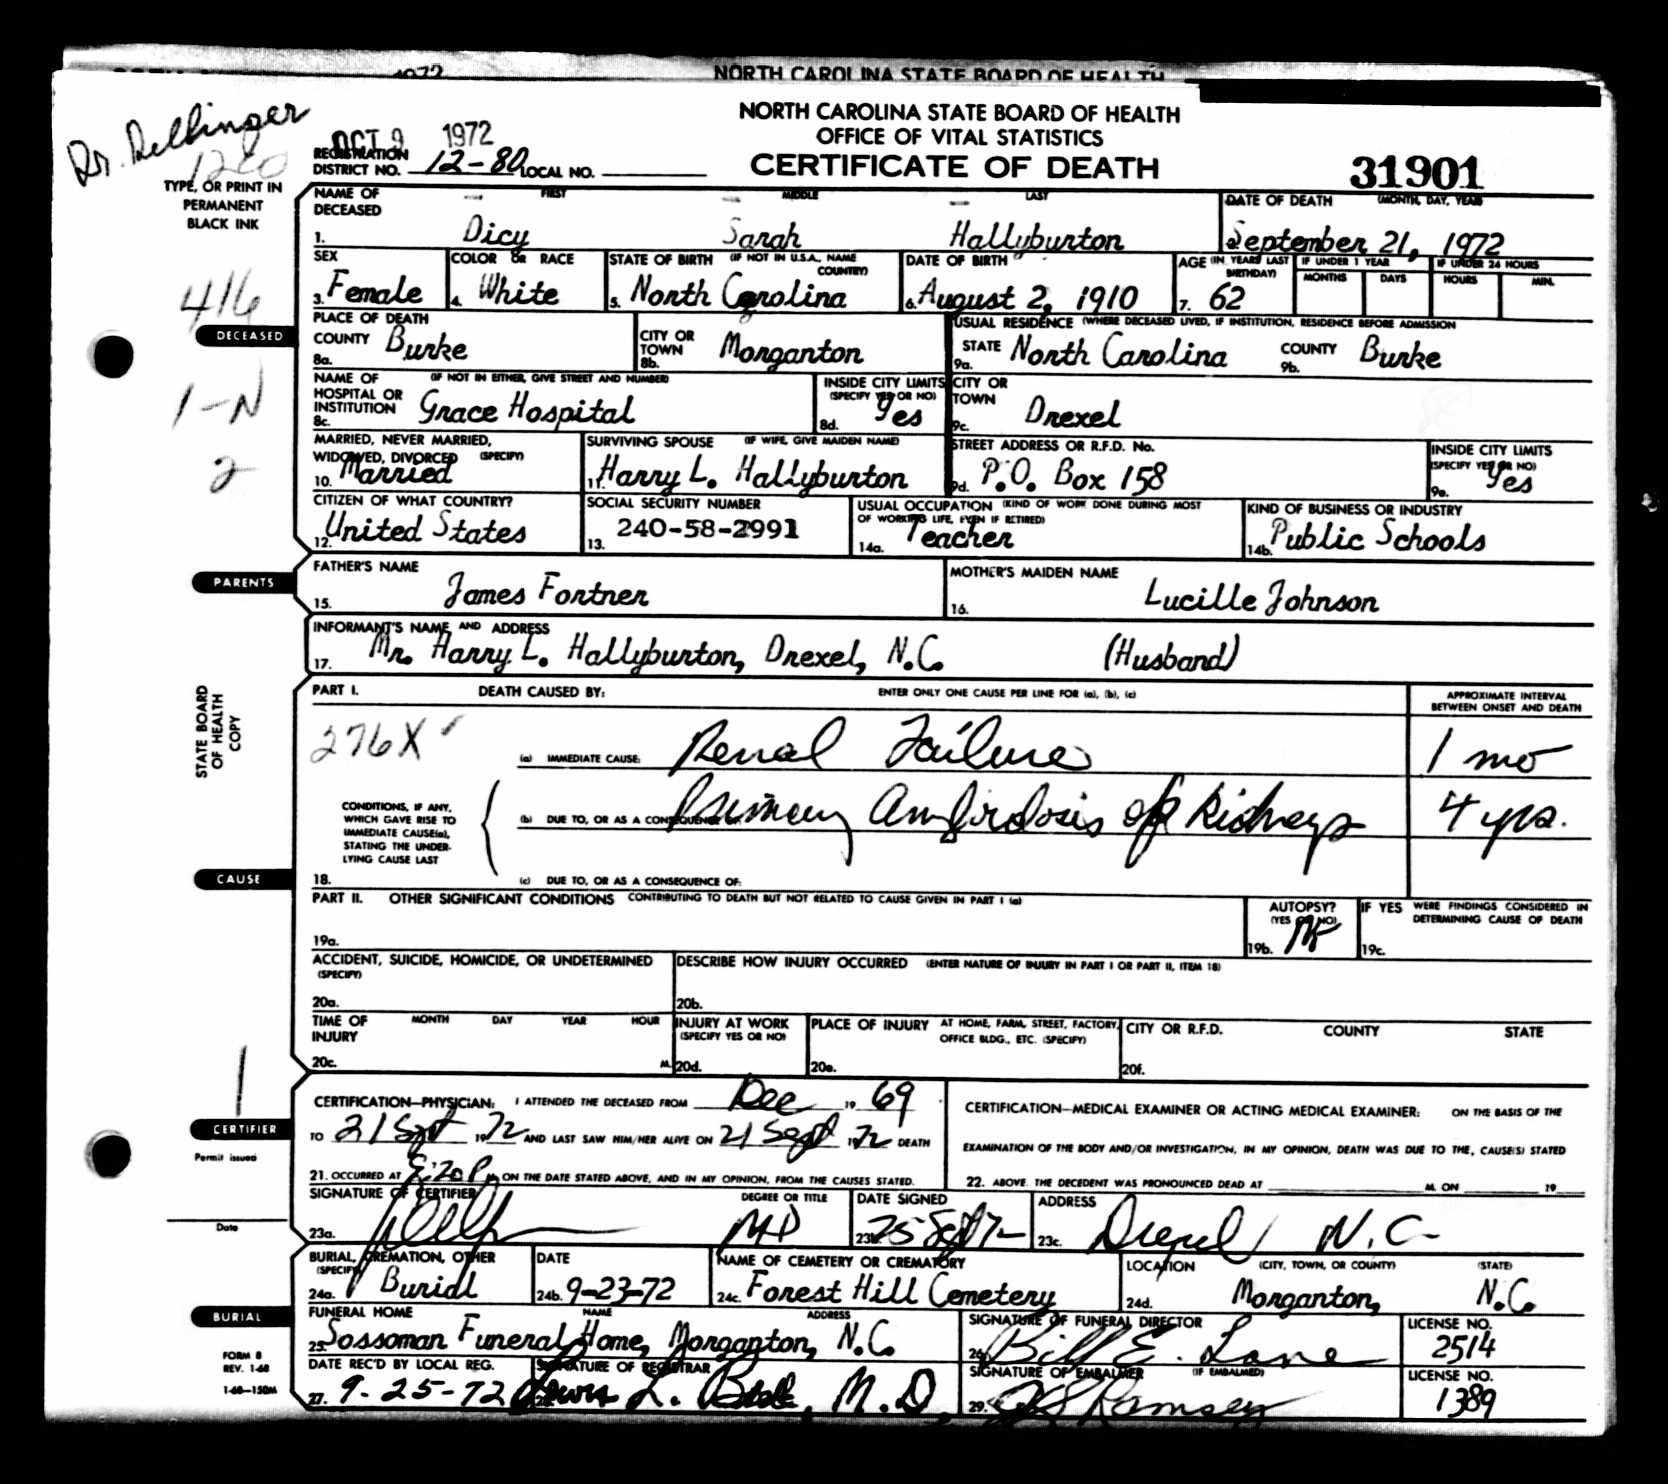 1972 NORTH CAROLINA STATE BOARD OF HEALTH
NORTH CAROLINA STATE BOARD OF HEALTH
OFFICE OF VITAL STATISTICS
CERTIFICATE OF DEATH
31901
Dr. Dellinger
1280
OCT 9 1972
REGISTRATION DISTRICT NO. 12-80 LOCAL NO.
TYPE, OR PRINT IN PERMANENT BLACK INK
NAME OF DECEASED FIRST MIDDLE LAST DATE OF DEATH (MONTH, DAY, YEAR)
1. Dicy Sarah Hallyburton 2. September 21, 1972
SEX COLOR OR RACE STATE OF BIRTH (IF NOT IN U.S.A., NAME COUNTRY) DATE OF BIRTH AGE (IN YEARS LAST BIRTHDAY) IF UNDER 1 YEAR MONTHS DAYS IF UNDER 24 HOURS HOURS MIN.
3. Female 4. White 5. North Carolina 6. August 2, 1910 7. 62
416
DECEASED
PLACE OF DEATH USUAL RESIDENCE (WHERE DECEASED LIVED, IF INSTITUTION, RESIDENCE BEFORE ADMISSION
COUNTY 8a. Burke CITY OR TOWN 8b. Morganton STATE 9a. North Carolina COUNTY 9b. Burke
NAME OF HOSPITAL OR INSTITUTION (IF NOT IN EITHER, GIVE STREET AND NUMBER) 8c. Grace Hospital INSIDE CITY LIMITS (SPECIFY YES OR NO) 8d. Yes CITY OR TOWN 9c. Drexel
1-N
2
MARRIED, NEVER MARRIED, WIDOWED, DIVORCED (SPECIFY) 10. Married SURVIVING SPOUSE (IF WIFE, GIVE MAIDEN NAME) 11. Harry L. Hallyburton STREET ADDRESS OR R.F.D. No. 9d. P.O. Box 158 INSIDE CITY LIMITS (SPECIFY YES OR NO) 9e. Yes
CITIZEN OF WHAT COUNTRY? 12. United States SOCIAL SECURITY NUMBER 13. 240-58-2991 USUAL OCCUPATION (KIND OF WORK DONE DURING MOST OF WORKING LIFE, EVEN IF RETIRED) 14a. Teacher KIND OF BUSINESS OR INDUSTRY 14b. Public Schools
PARENTS
FATHER'S NAME 15. James Fortner MOTHER'S MAIDEN NAME 16. Lucille Johnson
INFORMANT'S NAME AND ADDRESS
17. Mr. Harry L. Hallyburton, Drexel, N.C. (Husband)
STATE BOARD OF HEALTH COPY
PART I. DEATH CAUSED BY: ENTER ONLY ONE CAUSE PER LINE FOR (a), (b), (c) APPROXIMATE INTERVAL BETWEEN ONSET AND DEATH
276X
(a) IMMEDIATE CAUSE: Renal Failure 1 mo
CONDITIONS, IF ANY, WHICH GAVE RISE TO IMMEDIATE CAUSE(a), STATING THE UNDER-LYING CAUSE LAST
(b) DUE TO, OR AS A CONSEQUENCE OF: Primary Amyloidosis of Kidneys 4 yrs.
CAUSE
18. (c) DUE TO, OR AS A CONSEQUENCE OF:
PART II. OTHER SIGNIFICANT CONDITIONS CONTRIBUTING TO DEATH BUT NOT RELATED TO CAUSE GIVEN IN PART I (a) AUTOPSY? (YES OR NO) IF YES WERE FINDINGS CONSIDERED IN DETERMINING CAUSE OF DEATH
19a. 19b. 19c.
ACCIDENT, SUICIDE, HOMICIDE, OR UNDETERMINED (SPECIFY) DESCRIBE HOW INJURY OCCURRED (ENTER NATURE OF INJURY IN PART I OR PART II, ITEM 18)
20a. 20b.
TIME OF INJURY MONTH DAY YEAR HOUR INJURY AT WORK (SPECIFY YES OR NO) PLACE OF INJURY AT HOME, FARM, STREET, FACTORY, OFFICE BLDG., ETC. (SPECIFY) CITY OR R.F.D. COUNTY STATE
20c. M. 20d. 20e. 20f.
1
CERTIFIER
Permit issued
Date
CERTIFICATION—PHYSICIAN: I ATTENDED THE DECEASED FROM Dec 19 69
TO 21 Sept 1972 AND LAST SAW HIM/HER ALIVE ON 21 Sept 1972 DEATH
21. OCCURRED AT 20 P M. ON THE DATE STATED ABOVE, AND IN MY OPINION, FROM THE CAUSES STATED.
CERTIFICATION—MEDICAL EXAMINER OR ACTING MEDICAL EXAMINER: ON THE BASIS OF THE
EXAMINATION OF THE BODY AND/OR INVESTIGATION, IN MY OPINION, DEATH WAS DUE TO THE, CAUSE(S) STATED
22. ABOVE. THE DECEDENT WAS PRONOUNCED DEAD AT M. ON 19
SIGNATURE OF CERTIFIER DEGREE OR TITLE DATE SIGNED ADDRESS
23a. MD 23b. 25 Sept 72 23c. Drexel N.C.
BURIAL, CREMATION, OTHER (SPECIFY) DATE NAME OF CEMETERY OR CREMATORY LOCATION (CITY, TOWN, OR COUNTY) (STATE)
24a. Burial 24b. 9-23-72 24c. Forest Hill Cemetery 24d. Morganton, N.C.
BURIAL
FUNERAL HOME NAME ADDRESS SIGNATURE OF FUNERAL DIRECTOR LICENSE NO.
25. Sossoman Funeral Home, Morganton, N.C. 26. Bill E. Lane 2514
FORM 8
REV. 1-68
1-68—150M
DATE REC'D BY LOCAL REG. SIGNATURE OF REGISTRAR SIGNATURE OF EMBALMER (IF EMBALMED) LICENSE NO.
27. 9-25-72 L. M.D. 29. Ramsey 1389